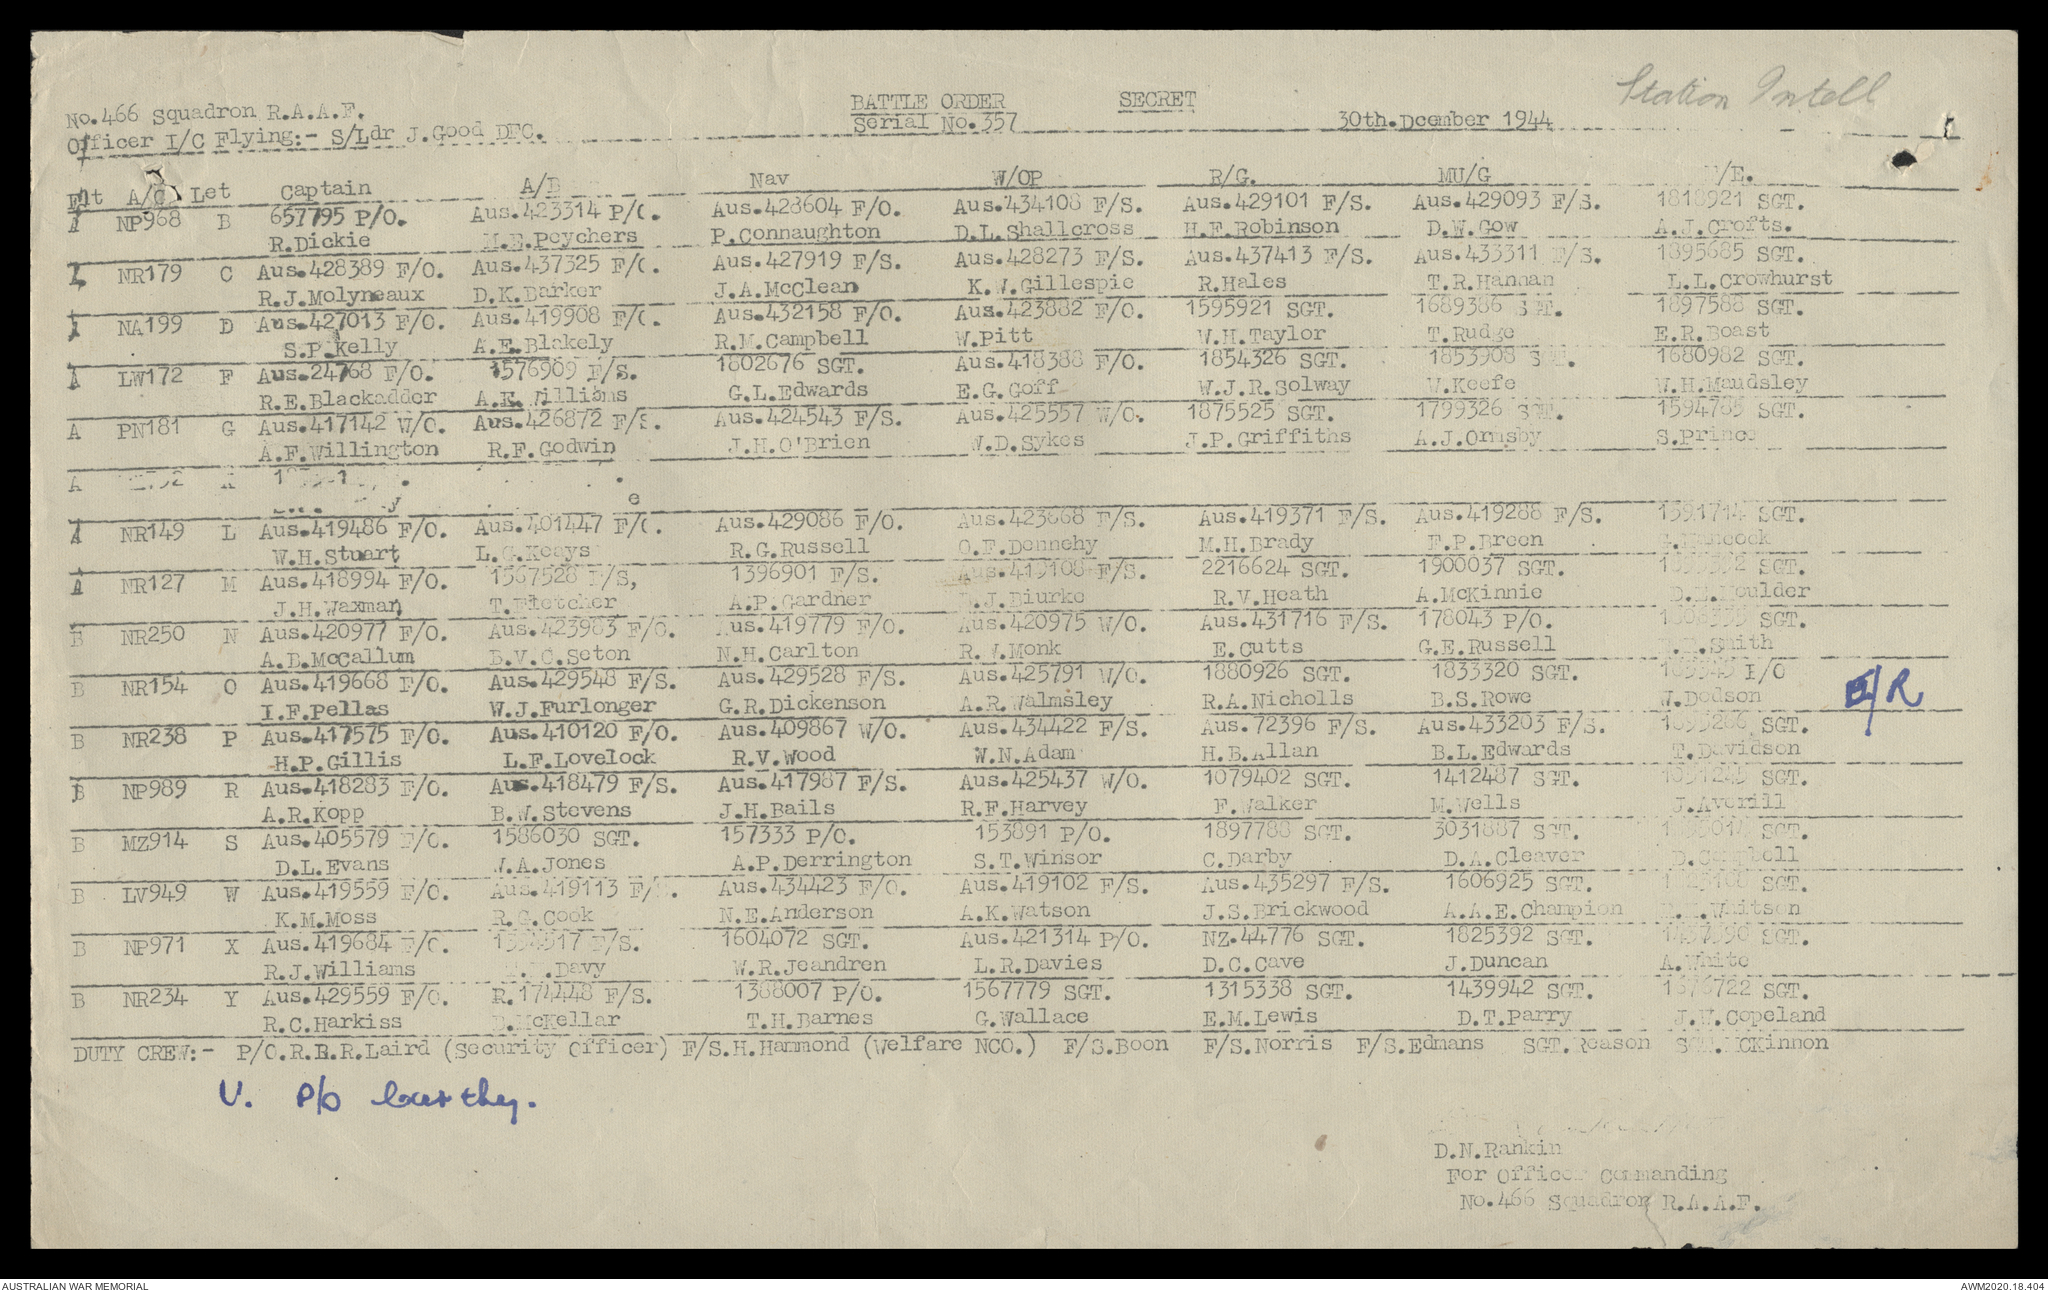 Station Intell
No.466 Squadron R.A.A.F. BATTLE ORDER SECRET
Officer I/C Flying:- S/Ldr J.Good DFC. Serial No.357 30th.Dcember 1944
Flt A/C Let Captain A/B Nav W/OP R/G. MU/G /E.
A NP968 B 657795 P/O. Aus.423314 P/O. Aus.428604 F/O. Aus.434108 F/S. Aus.429101 F/S. Aus.429093 F/S. 1818921 SGT.
R.Dickie M.E.Peychers P.Connaughton D.L.Shallcross H.E.Robinson D.W.Gow A.J.Crofts.
A NR179 C Aus.428389 F/O. Aus.437325 F/O. Aus.427919 F/S. Aus.428273 F/S. Aus.437413 F/S. Aus.433311 F/S. 1895685 SGT.
R.J.Molyneaux D.K.Barker J.A.McClean K.W.Gillespie R.Hales T.R.Hannan L.L.Crowhurst
A NA199 D Aus.427013 F/O. Aus.419908 F/O. Aus.432158 F/O. Aus.423882 F/O. 1595921 SGT. 1689386 SGT. 1897588 SGT.
S.P.Kelly A.E.Blakely R.M.Campbell W.Pitt W.H.Taylor T.Rudge E.R.Boast
A LW172 F Aus.24768 F/O. 1576909 F/S. 1802676 SGT. Aus.418388 F/O. 1854326 SGT. 1853908 SGT. 1680982 SGT.
R.E.Blackadder A.K.Williams G.L.Edwards E.G.Goff W.J.R.Solway W.Keefe W.H.Maudsley
A PN181 G Aus.417142 W/O. Aus.426872 F/S. Aus.424543 F/S. Aus.425557 W/O. 1875525 SGT. 1799326 SGT. 1594785 SGT.
A.F.Willington R.F.Godwin J.H.O'Brien W.D.Sykes J.P.Griffiths A.J.Ormsby S.Prince
A
A NR149 L Aus.419486 F/O. Aus.401447 F/O. Aus.429086 F/O. Aus.423668 F/S. Aus.419371 F/S. Aus.419288 F/S. 1591714 SGT.
W.H.Stuart L.G.Keays R.G.Russell O.F.Dennehy M.H.Brady F.P.Breen Hancock
A NR127 M Aus.418994 F/O. 1567528 F/S, 1396901 F/S. Aus.419108 F/S. 2216624 SGT. 1900037 SGT. SGT.
J.H.Waxman T.Fletcher A.P.Gardner J.Biurke R.V.Heath A.McKinnie D.E.Houlder
B NR250 N Aus.420977 F/O. Aus.423983 F/O. Aus.419779 F/O. Aus.420975 W/O. Aus.431716 F/S. 178043 P/O. SGT.
A.B.McCallum B.V.C.Seton N.H.Carlton R.W.Monk E.Cutts G.E.Russell Smith
B NR154 O Aus.419668 F/O. Aus.429548 F/S. Aus.429528 F/S. Aus.425791 W/O. 1880926 SGT. 1833320 SGT.
I.F.Pellas W.J.Furlonger G.R.Dickenson A.R.Walmsley R.A.Nicholls B.S.Rowe W.Dodson E/R
B NR238 P Aus.417575 F/O. Aus.410120 F/O. Aus.409867 W/O. Aus.434422 F/S. Aus.72396 F/S. Aus.433203 F/S. 1895266 SGT.
H.P.Gillis L.F.Lovelock R.V.Wood W.N.Adam H.B.Allan B.L.Edwards T.Davidson
B NP989 R Aus.418283 F/O. Aus.418479 F/S. Aus.417987 F/S. Aus.425437 W/O. 1079402 SGT. 1412487 SGT. SGT.
A.R.Kopp B.W.Stevens J.H.Bails R.F.Harvey F.Walker M.Wells J.Averill
B MZ914 S Aus.405579 F/O. 1586030 SGT. 157333 P/O. 153891 P/O. 1897788 SGT. 3031887 SGT. SGT.
D.L.Evans W.A.Jones A.P.Derrington S.T.Winsor C.Darby D.A.Cleaver D.Campbell
B LV949 W Aus.419559 F/O. Aus.419113 F/S. Aus.434423 F/O. Aus.419102 F/S. Aus.435297 F/S. 1606925 SGT. SGT.
K.M.Moss R.G.Cook N.E.Anderson A.K.Watson J.S.Brickwood A.A.E.Champion Whitson
B NP971 X Aus.419684 F/O. F/S. 1604072 SGT. Aus.421314 P/O. NZ.44776 SGT. 1825392 SGT. SGT.
R.J.Williams Davy W.R.Jeandren L.R.Davies D.C.Cave J.Duncan A.White
B NR234 Y Aus.429559 F/O. R.174448 F/S. 1388007 P/O. 1567779 SGT. 1315338 SGT. 1439942 SGT. 1676722 SGT.
R.C.Harkiss D.McKellar T.H.Barnes G.Wallace E.M.Lewis D.T.Parry J.W.Copeland
DUTY CREW:- P/O.R.B.R.Laird (Security Officer) F/S.H.Hammond (Welfare NCO.) F/S.Boon F/S.Norris F/S.Edmans SGT.Reason SGT.McKinnon
V. P/O
D.N.Rankin
For Officer Commanding
No.466 Squadron R.A.A.F.
AUSTRALIAN WAR MEMORIAL AWM2020.18.404